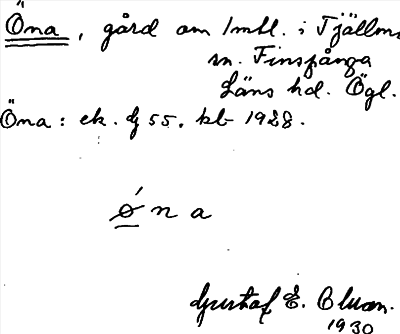 Öna, gård om 1 mtl. i Tjällmo
sn. Finspånga
Läns hd. Ögl.
Öna: ek. bl 55. kb 1928.
ǿna
Gustaf E. Bluom.
1930